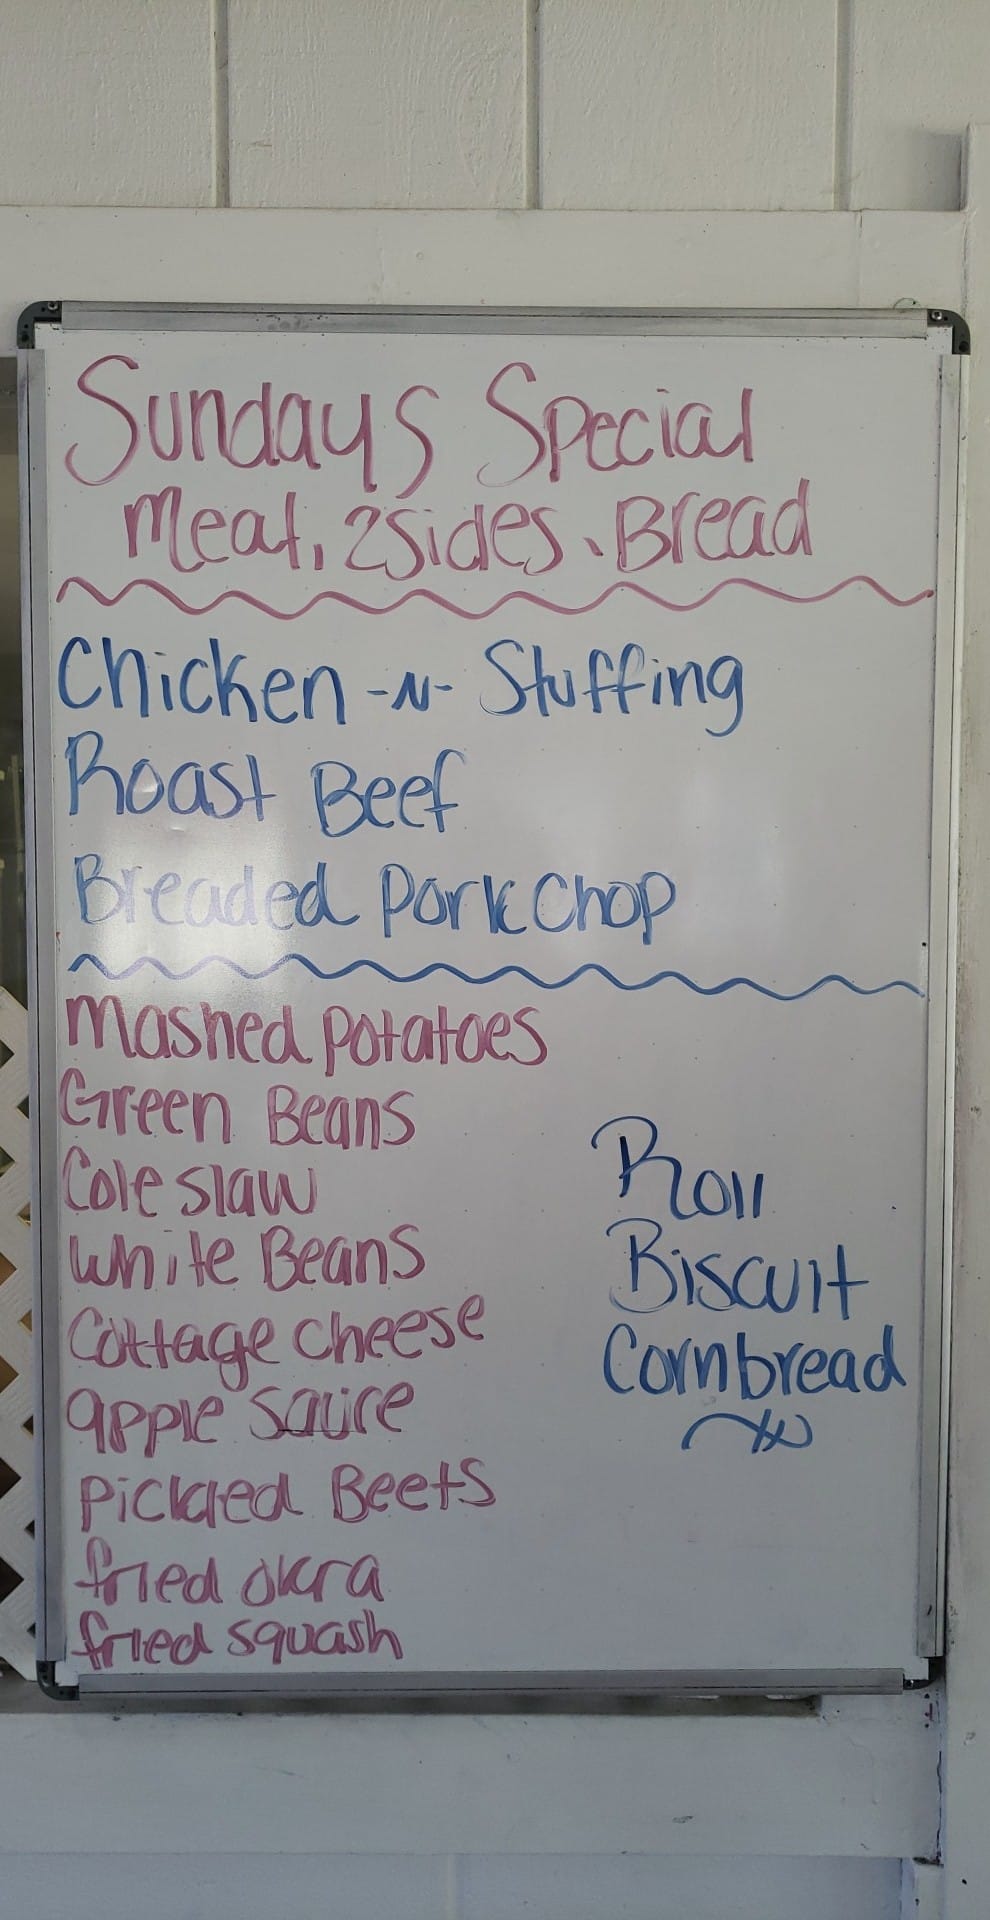 Sundays Special
Meat, 2sides, Bread
Chicken -N- Stuffing
Roast Beef
Breaded Pork Chop
Mashed Potatoes
Green Beans
Cole slaw
White Beans
Cottage cheese
apple sauce
Pickled Beets
fried okra
fried squash
Roll
Biscuit
Cornbread